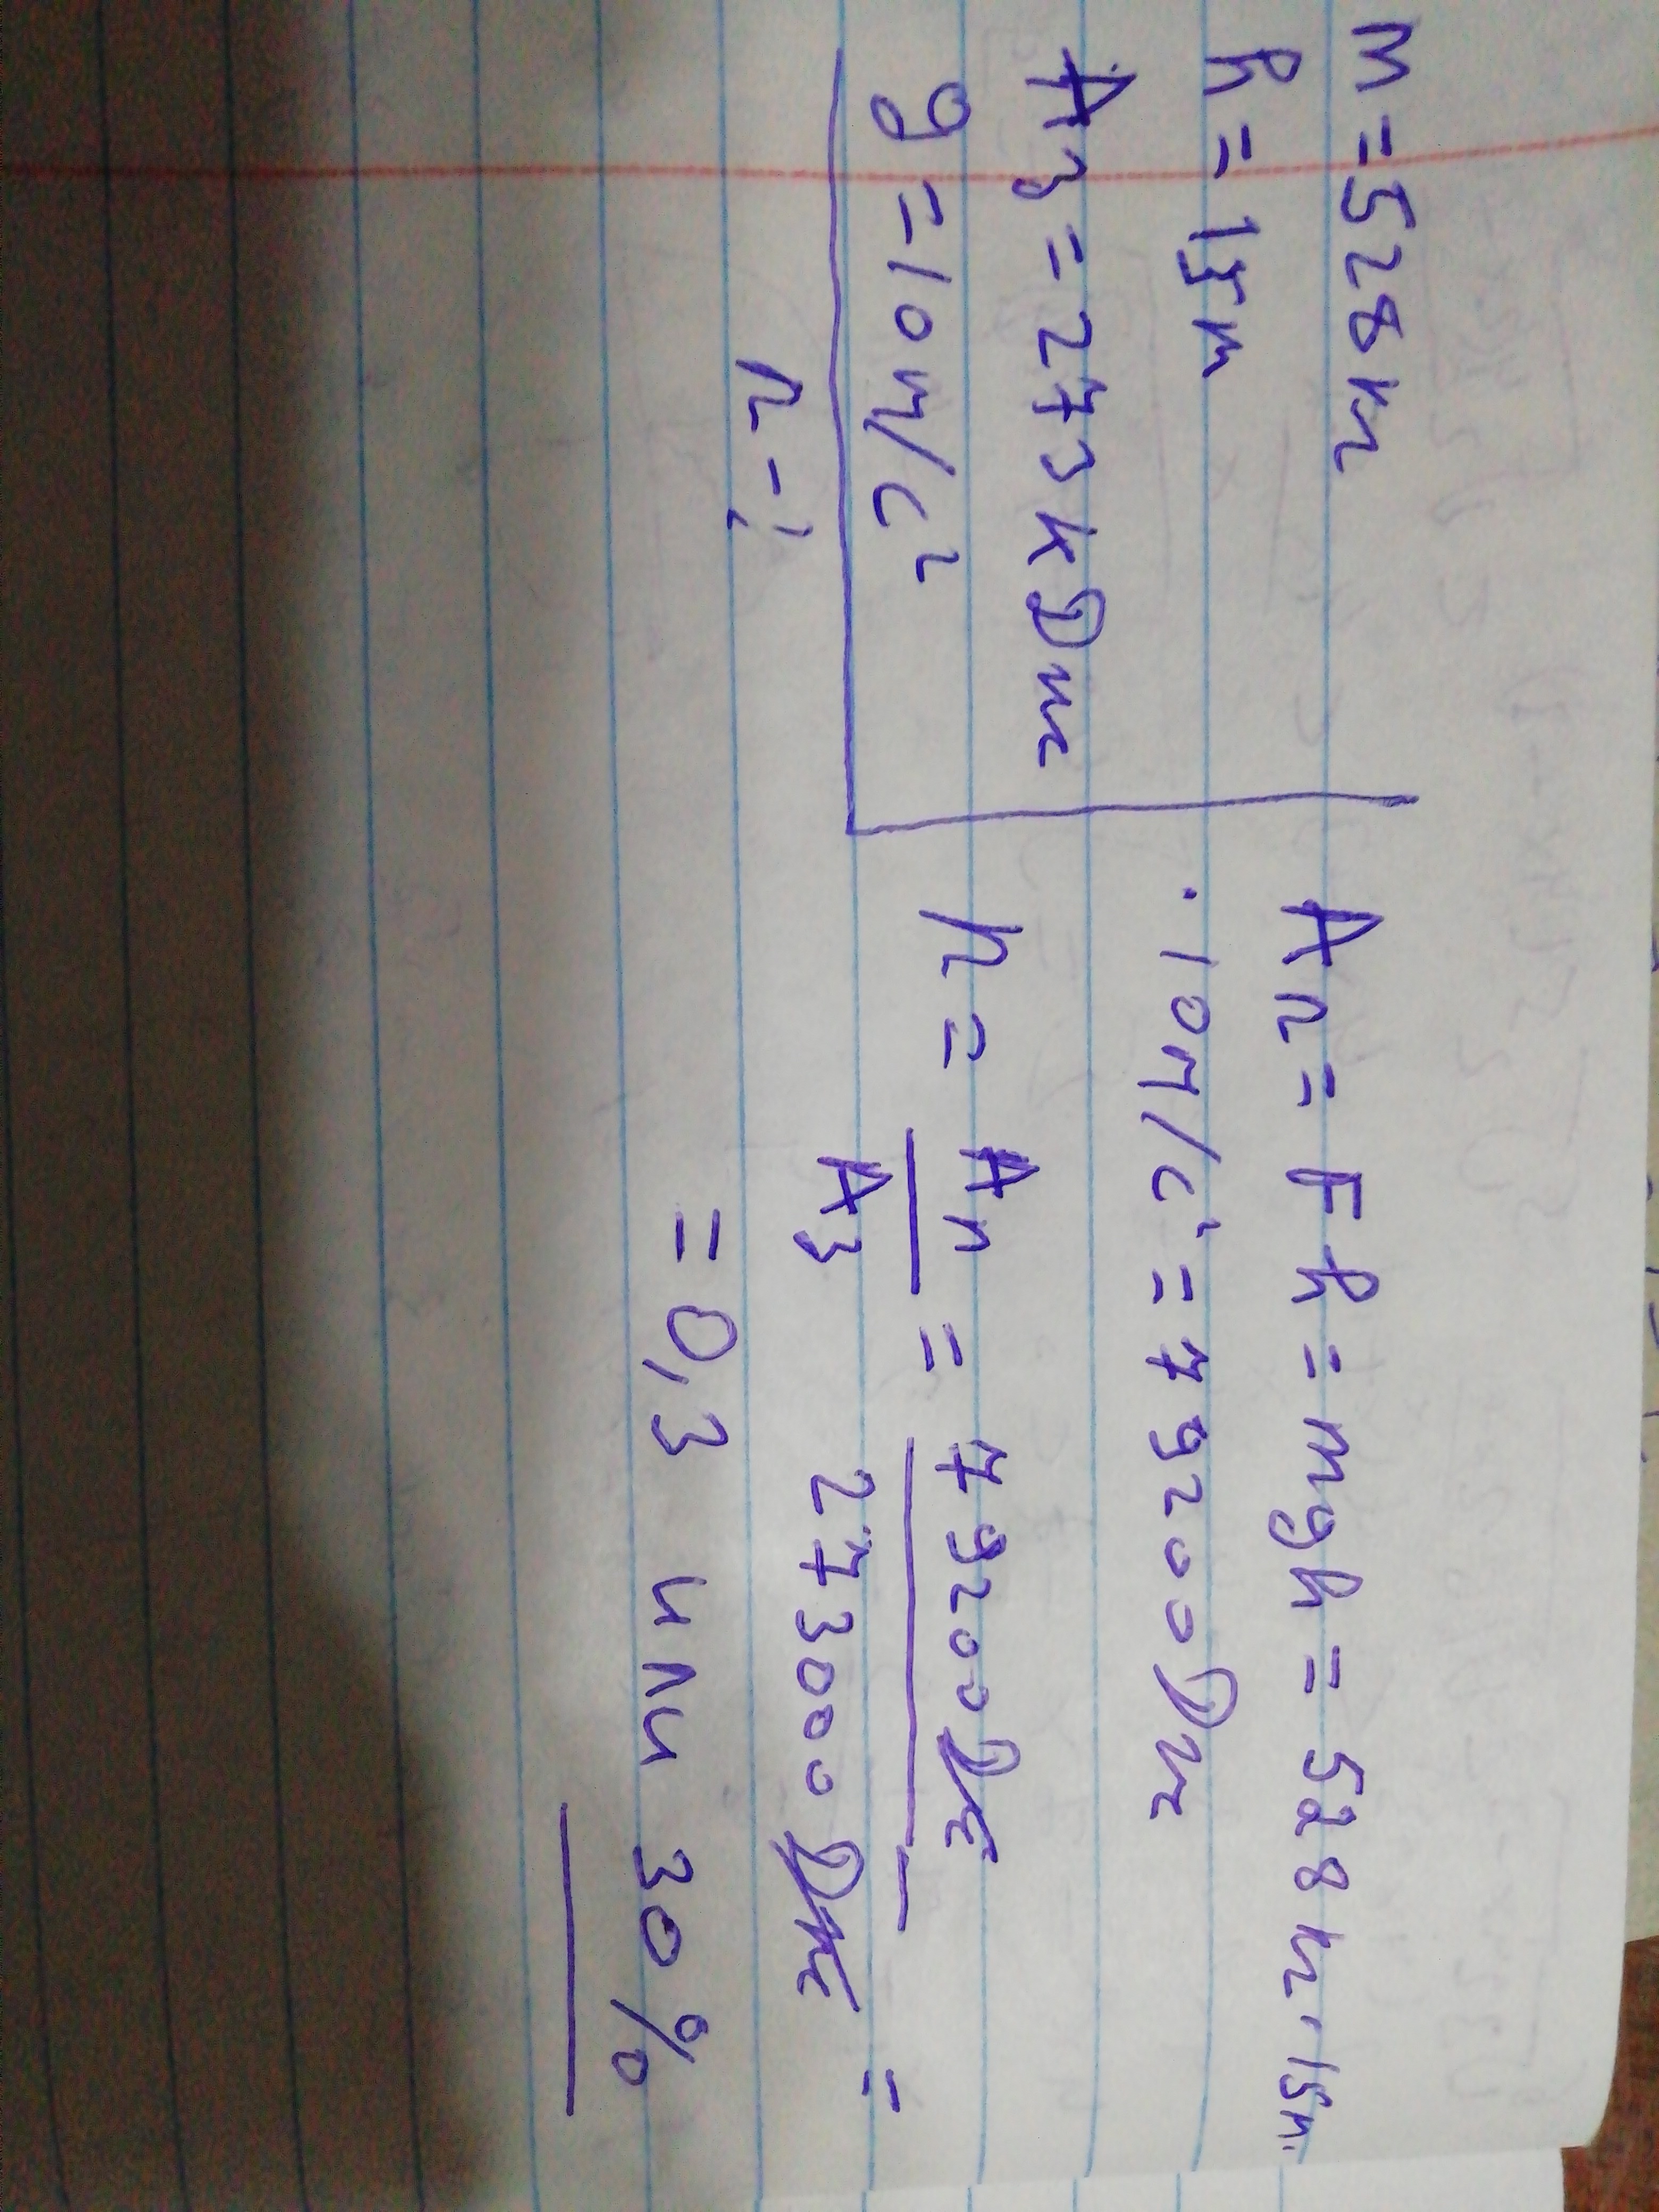 m = 528 кг
h = 15 м
Aз = 273 кДж
g = 10 м/с²
η - ?
Aп = Fh = mgh = 528 кг · 15м ·
· 10 м/с² = 79200 Дж
η = Aп / Aз = 79200 Дж / 273000 Дж =
= 0,3 или 30%